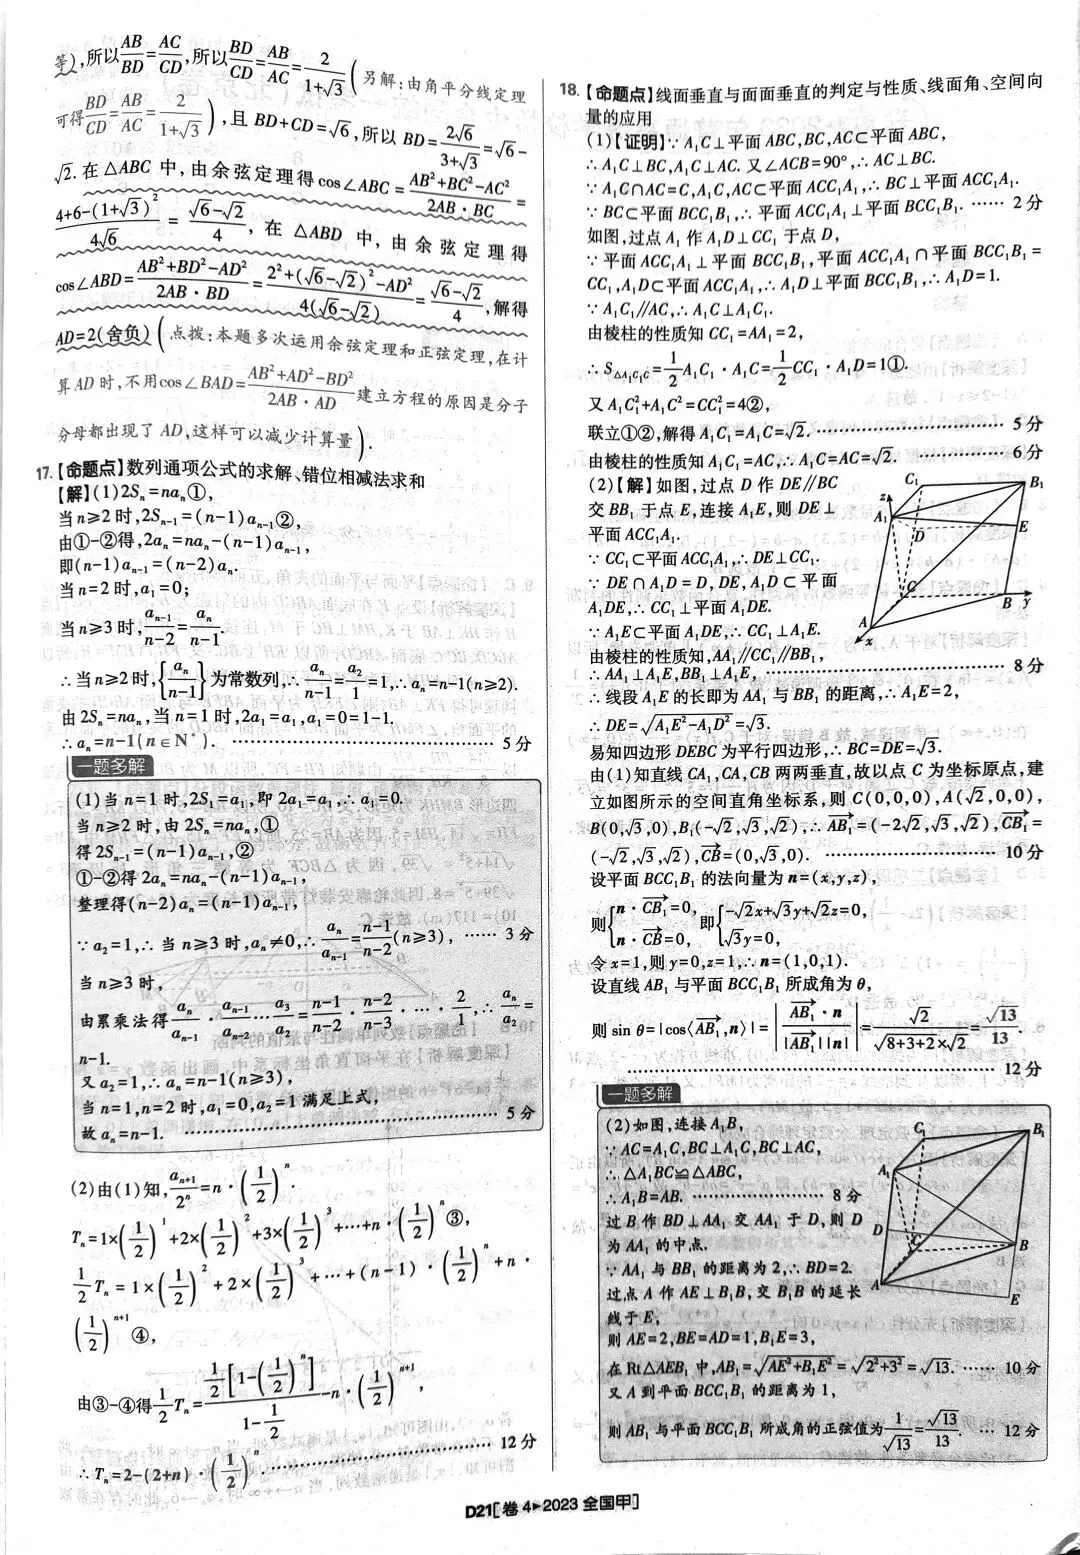 等),所以AB/BD=AC/CD,所以BD/CD=AB/AC=2/(1+√3)(另解:由角平分线定理
可得BD/CD=AB/AC=2/(1+√3)),且BD+CD=√6,所以BD=2√6/(3+√3)=√6-
√2.在△ABC中,由余弦定理得cos∠ABC=(AB²+BC²-AC²)/(2AB·BC)=
(4+6-(1+√3)²)/(4√6)=(√6-√2)/4,在△ABD中,由余弦定理得
cos∠ABD=(AB²+BD²-AD²)/(2AB·BD)=(2²+(√6-√2)²-AD²)/(4(√6-√2))=(√6-√2)/4,解得
AD=2(舍负)(点拨:本题多次运用余弦定理和正弦定理,在计
算AD时,不用cos∠BAD=(AB²+AD²-BD²)/(2AB·AD)建立方程的原因是分子
分母都出现了AD,这样可以减少计算量).
17.【命题点】数列通项公式的求解、错位相减法求和
【解】(1)2Sₙ=naₙ①,
当n≥2时,2Sₙ₋₁=(n-1)aₙ₋₁②,
由①-②得,2aₙ=naₙ-(n-1)aₙ₋₁,
即(n-1)aₙ₋₁=(n-2)aₙ.
当n=2时,a₁=0;
当n≥3时,aₙ₋₁/(n-2)=aₙ/(n-1).
∴当n≥2时,{aₙ/(n-1)}为常数列,∴aₙ/(n-1)=a₂/1=1,∴aₙ=n-1(n≥2).
由2Sₙ=naₙ,当n=1时,2a₁=a₁,a₁=0=1-1,
∴aₙ=n-1(n∈N*).……5分
一题多解
(1)当n=1时,2S₁=a₁,即2a₁=a₁,∴a₁=0.
当n≥2时,由2Sₙ=naₙ,①
得2Sₙ₋₁=(n-1)aₙ₋₁,②
①-②得2aₙ=naₙ-(n-1)aₙ₋₁,
整理得(n-2)aₙ=(n-1)aₙ₋₁,
∵a₂=1,∴当n≥3时,aₙ≠0,∴aₙ/aₙ₋₁=(n-1)/(n-2)(n≥3),……3分
当n≥3时,
由累乘法得aₙ/aₙ₋₁·aₙ₋₁/aₙ₋₂·…·a₃/a₂=(n-1)/(n-2)·(n-2)/(n-3)·…·2/1,∴aₙ/a₂=
n-1.
又a₂=1,∴aₙ=n-1(n≥3),
当n=1,n=2时,a₁=0,a₂=1满足上式,
故aₙ=n-1.……5分
(2)由(1)知,aₙ₊₁/2ⁿ=n·(1/2)ⁿ.
Tₙ=1×(1/2)¹+2×(1/2)²+3×(1/2)³+…+n·(1/2)ⁿ③,
1/2Tₙ=1×(1/2)²+2×(1/2)³+…+(n-1)·(1/2)ⁿ+n·
(1/2)ⁿ⁺¹④,
由③-④得1/2Tₙ=(1/2[1-(1/2)ⁿ])/(1-1/2)-n·(1/2)ⁿ⁺¹,
∴Tₙ=2-(2+n)·(1/2)ⁿ.……12分
18.【命题点】线面垂直与面面垂直的判定与性质、线面角、空间向
量的应用
(1)【证明】∵A₁C⊥平面ABC,BC,AC⊂平面ABC,
∴A₁C⊥BC,A₁C⊥AC.又∠ACB=90°,∴AC⊥BC.
∵A₁C∩AC=C,A₁C,AC⊂平面ACC₁A₁,∴BC⊥平面ACC₁A₁.
∵BC⊂平面BCC₁B₁,∴平面ACC₁A₁⊥平面BCC₁B₁.……2分
如图,过点A₁作A₁D⊥CC₁于点D,
∵平面ACC₁A₁⊥平面BCC₁B₁,平面ACC₁A₁∩平面BCC₁B₁=
CC₁,A₁D⊂平面ACC₁A₁,∴A₁D⊥平面BCC₁B₁,∴A₁D=1.
∵A₁C₁∥AC,∴A₁C⊥A₁C₁.
由棱柱的性质知CC₁=AA₁=2,
∴S△A₁C₁C=1/2A₁C₁·A₁C=1/2CC₁·A₁D=1①.
又A₁C₁²+A₁C²=CC₁²=4②,
联立①②,解得A₁C₁=A₁C=√2.……5分
由棱柱的性质知A₁C₁=AC,∴A₁C=AC=√2.……6分
(2)【解】如图,过点D作DE∥BC
交BB₁于点E,连接A₁E,则DE⊥
平面ACC₁A₁.
∵CC₁⊂平面ACC₁A₁,∴DE⊥CC₁.
∵DE∩A₁D=D,DE,A₁D⊂平面
A₁DE,∴CC₁⊥平面A₁DE.
∵A₁E⊂平面A₁DE,∴CC₁⊥A₁E.
由棱柱的性质知,AA₁∥CC₁∥BB₁,
∴AA₁⊥A₁E,BB₁⊥A₁E,……8分
∴线段A₁E的长即为AA₁与BB₁的距离,∴A₁E=2,
∴DE=√(A₁E²-A₁D²)=√3.
易知四边形DEBC为平行四边形,∴BC=DE=√3.
由(1)知直线CA₁,CA,CB两两垂直,故以点C为坐标原点,建
立如图所示的空间直角坐标系,则C(0,0,0),A(√2,0,0),
B(0,√3,0),B₁(-√2,√3,√2),∴AB₁=(-2√2,√3,√2),CB₁=
(-√2,√3,√2),CB=(0,√3,0).……10分
设平面BCC₁B₁的法向量为n=(x,y,z),
则{n·CB₁=0,n·CB=0,即{-√2x+√3y+√2z=0,√3y=0,
令x=1,则y=0,z=1,∴n=(1,0,1).
设直线AB₁与平面BCC₁B₁所成角为θ,
则sin θ=|cos⟨AB₁,n⟩|=|AB₁·n/(|AB₁||n|)|=√2/(√(8+3+2)×√2)=√13/13.
……12分
C₁
B₁
z
A₁
E
D
C
B
y
A
x
一题多解
(2)如图,连接A₁B,
∵AC=A₁C,BC⊥A₁C,BC⊥AC,
∴△A₁BC≌△ABC,
∴A₁B=AB.……8分
过B作BD⊥AA₁交AA₁于D,则D
为AA₁的中点.
∵AA₁与BB₁的距离为2,∴BD=2.
过点A作AE⊥B₁B,交B₁B的延长
线于E,
则AE=2,BE=AD=1,B₁E=3,
在Rt△AEB₁中,AB₁=√(AE²+B₁E²)=√(2²+3²)=√13.……10分
又A到平面BCC₁B₁的距离为1,
则AB₁与平面BCC₁B₁所成角的正弦值为1/√13=√13/13.……12分
C₁
B₁
A₁
D
C
B
A
E
D21[卷4▸2023 全国甲]